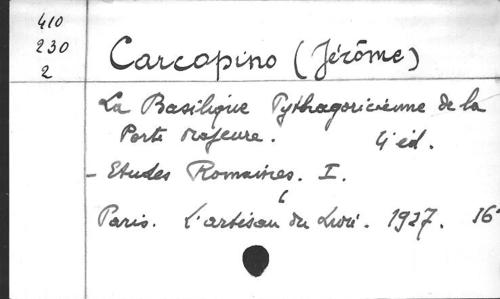 410
230
2
Carcopino (Jérôme)
La Basilique Pythagoricienne de la
Porte Majeure. 4e éd.
- Etudes Romaines. I.
Paris. L'artisan du Livre. 1927. 16°